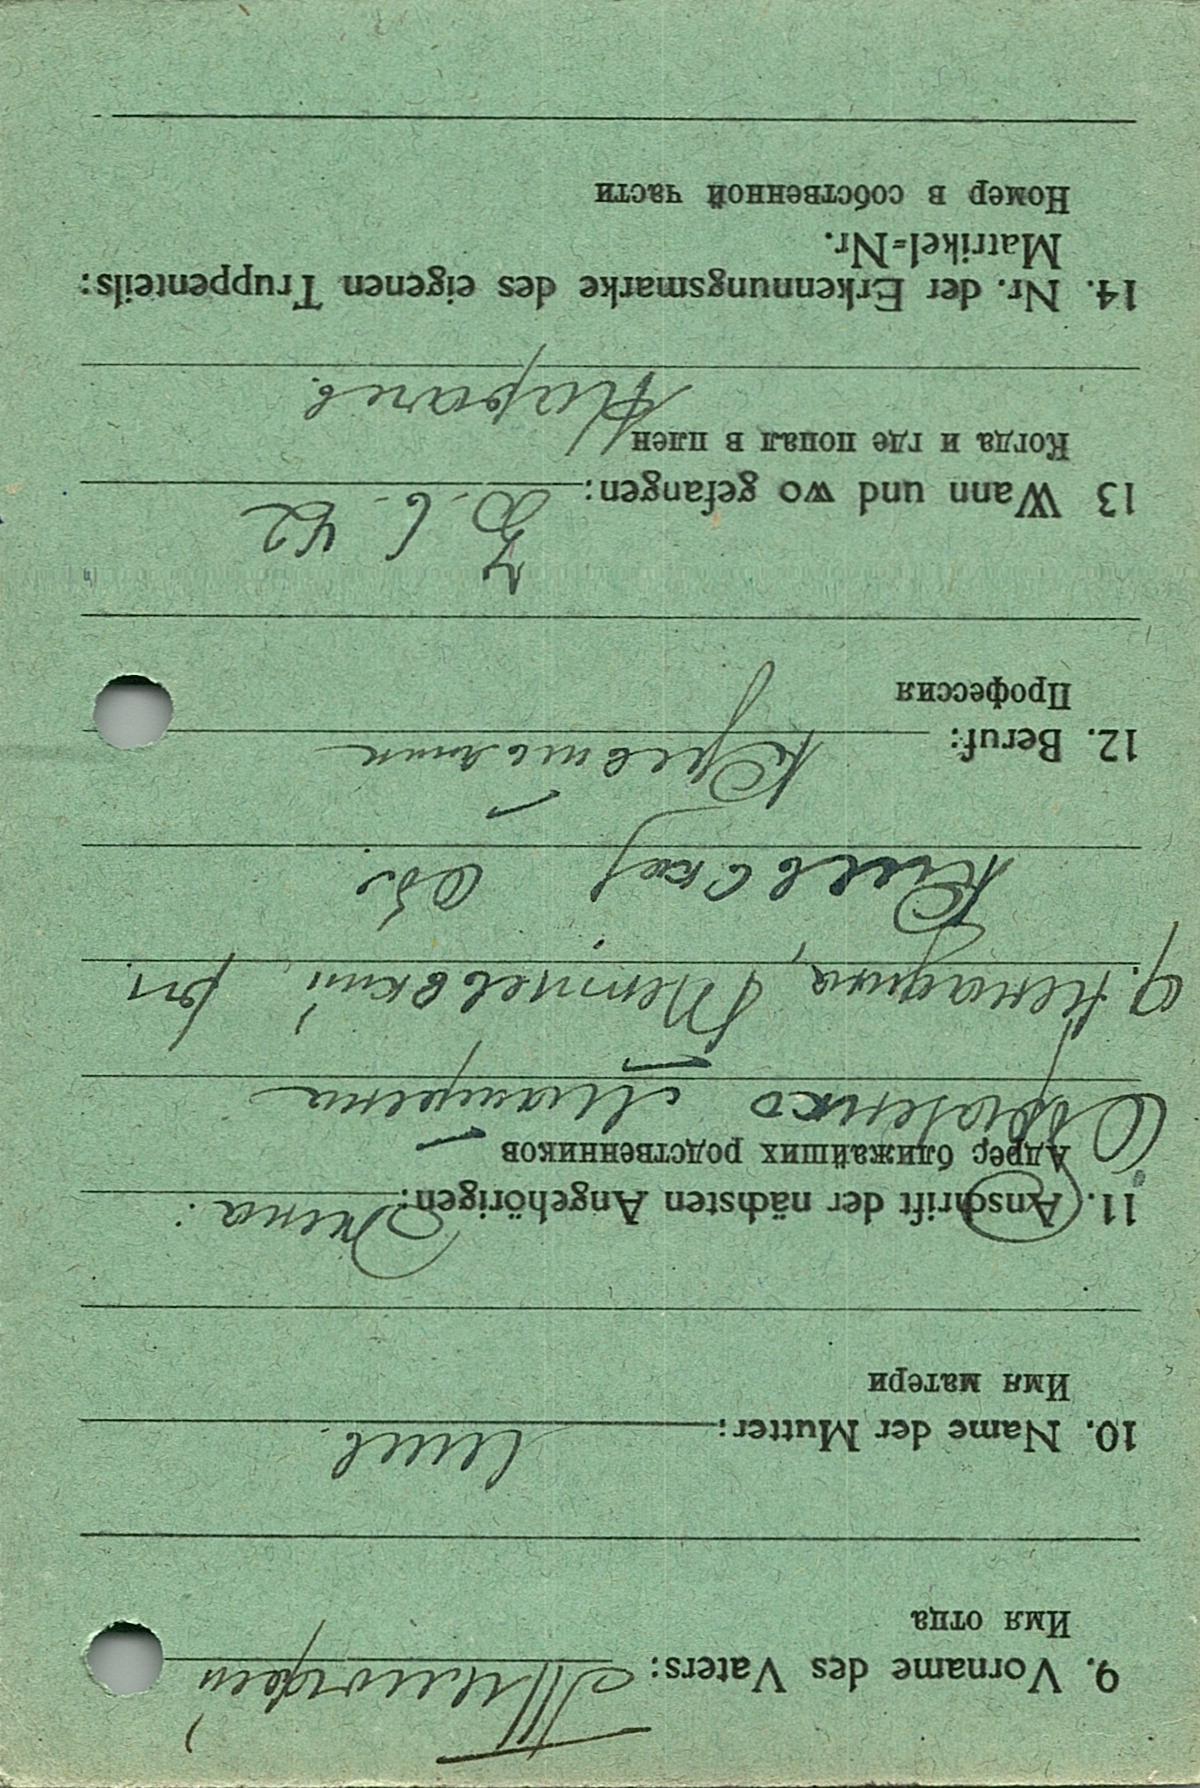 9. Vorname des Vaters: Тимофей
Имя отца
10. Name der Mutter:
Имя матери
11. Anschrift der nächsten Angehörigen: Жена:
Адрес ближайших родственников
Марфена
д. Кенадина, Тетиевский рн.
Киевской Об.
12. Beruf:
Профессия
13 Wann und wo gefangen: 30. 6. 42
Когда и где попал в плен
Харьков.
14. Nr. der Erkennungsmarke des eigenen Truppenteils:
Matrikel=Nr.
Номер в собственной части